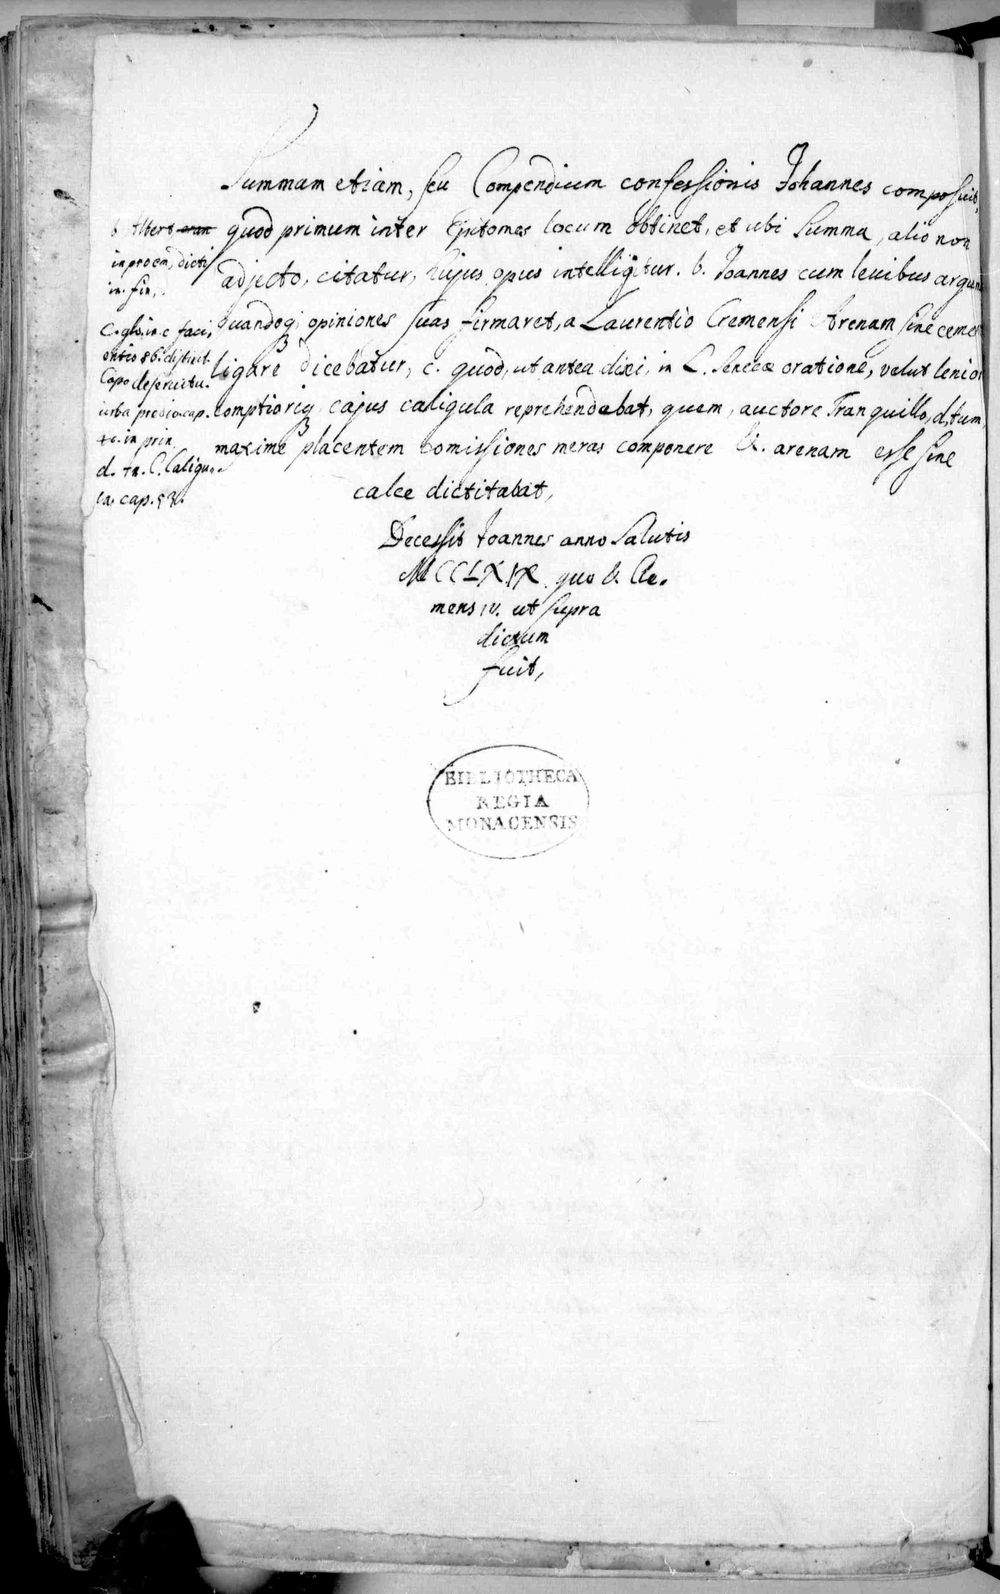 Summam etiam, seu Compendium confessionis Johannes composuit,
quod primum inter Epitomes locum obtinet, et ubi Summa, alio non
adjecto, citatur, hujus opus intelligitur. b. Joannes cum levibus argum
quandoq; opiniones suas firmaret, a Laurentio Cremensi Arenam sine ceme
ligare dicebatur, c. quod, ut antea dixi, in L. Senecæ oratione, velut lenior
comptioriq; cajus caligula reprehendebat, quem, auctore Tranquillo, d, tum,
maxime placentem comissiones meras componere &. arenam esse sine
calce dictitabat,
Decessit Joannes anno Salutis
MCCLXIX quo & Cle.
mens iv. ut supra
dictum
fuit,
b Albert
in proem, dicti
in. fin,.
C. glo. in c faci,
entio 86. distinct.
Capo de servitu.
urba predio. cap.
in prin
d. tr. C. Caligu
la. cap. 53.
BIBLIOTHECA
REGIA
MONACENSIS